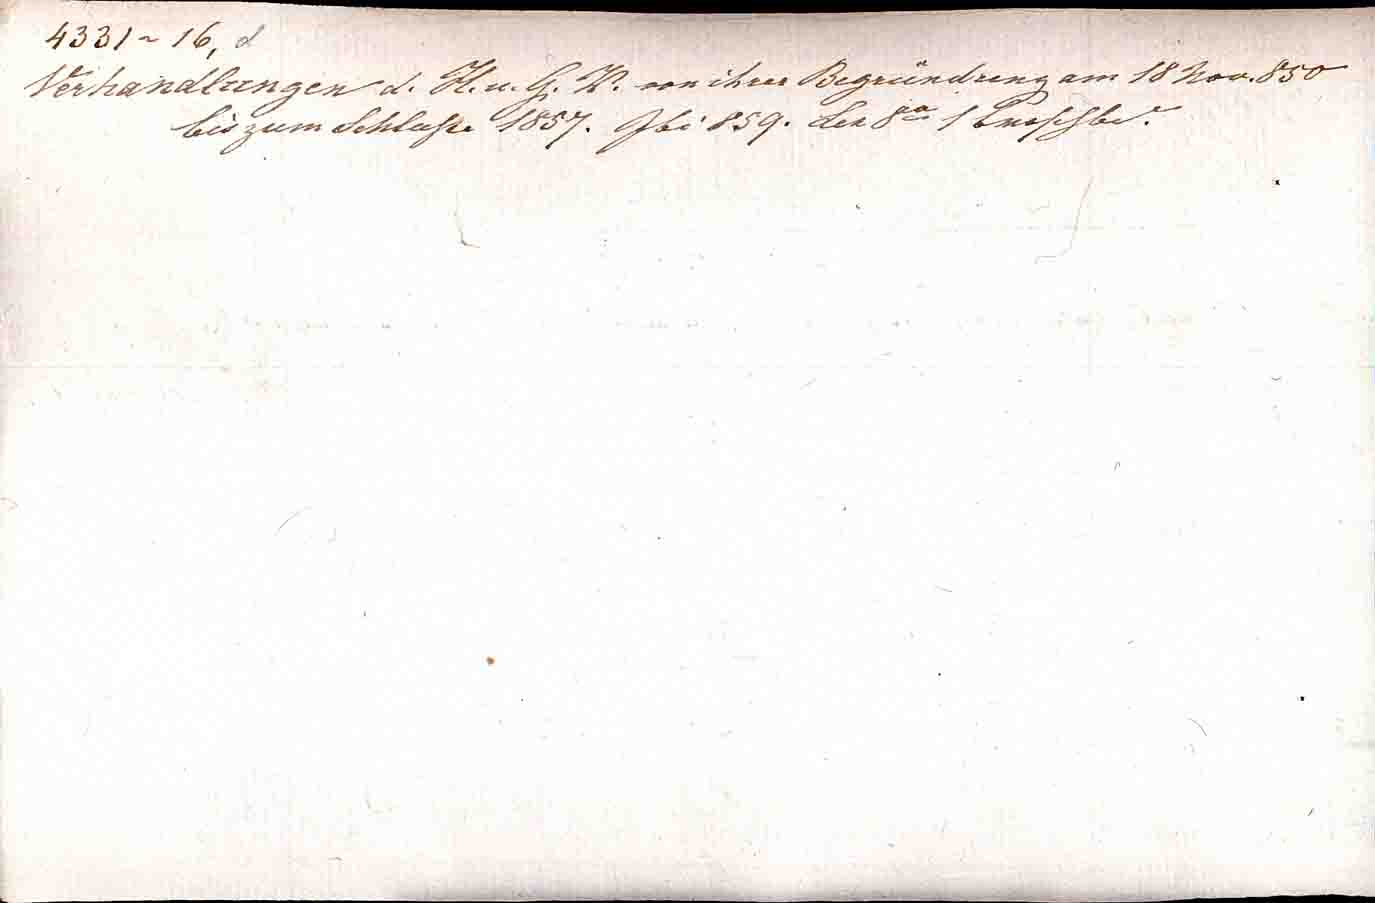 4331~16, d
Verhandlungen d. H. u. G. K. von ihrer Begründung am 18 Nov. 850
bis zum Schluße 1857. Ibi 859. Lex 8º 1